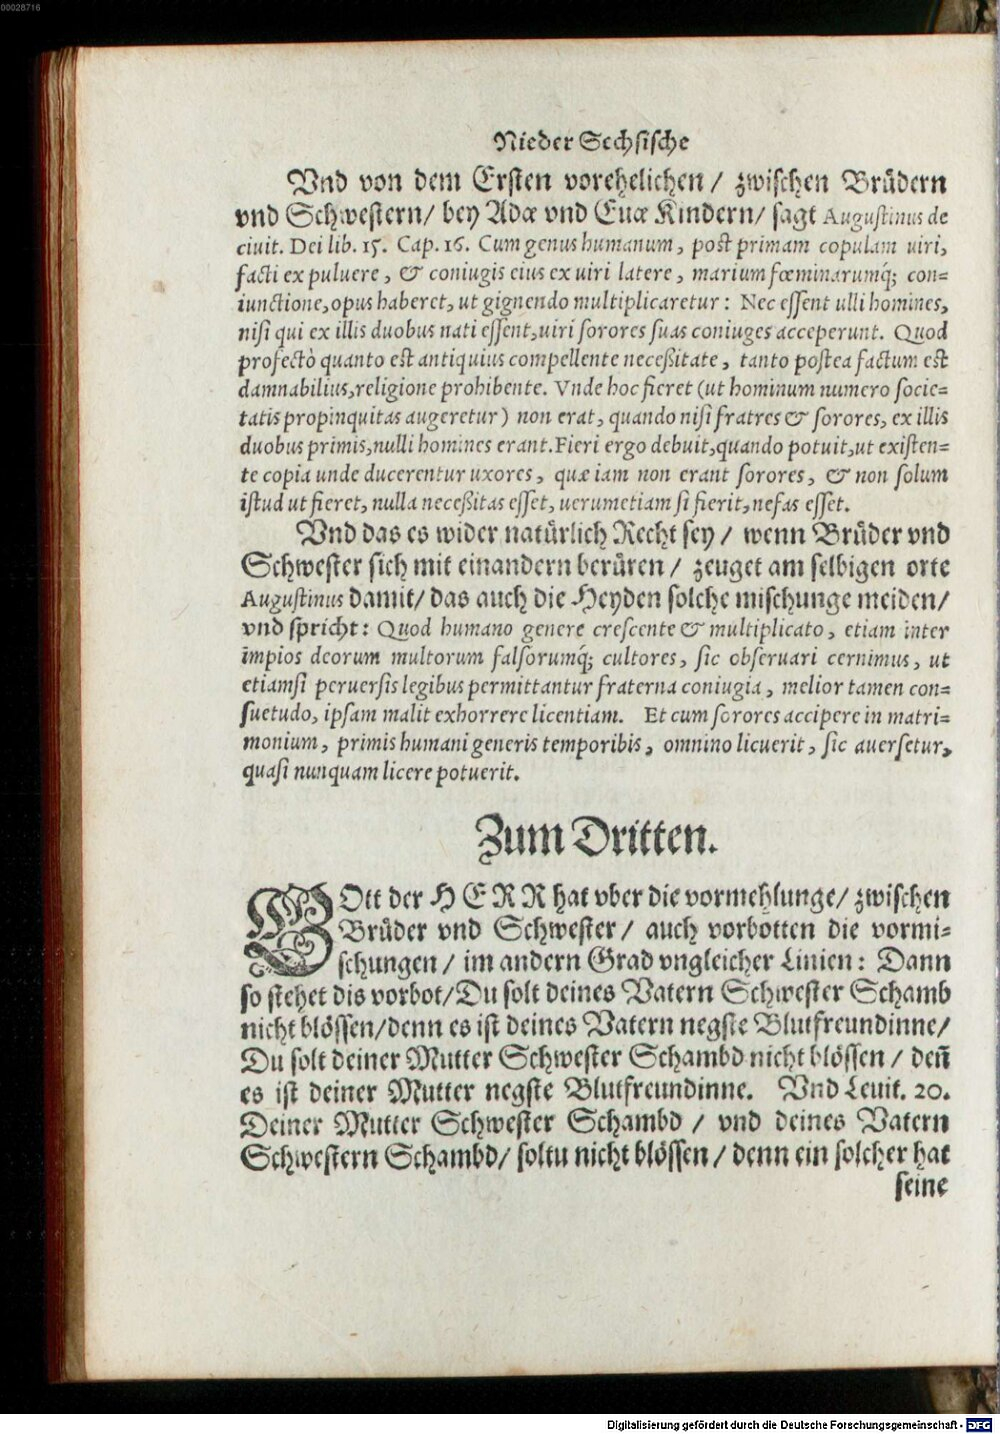 00028716
Nieder Sechsische
Vnd von dem Ersten vorehelichen / zwischen Brüdern
vnd Schwestern / bey Adæ vnd Euæ Kindern / sagt Augustinus de
ciuit. Dei lib. 15. Cap. 16. Cum genus humanum, post primam copulam uiri,
facti ex puluere, & coniugis eius ex uiri latere, marium fœminarumq́; con=
iunctione, opus haberet, ut gignendo multiplicaretur: Nec essent ulli homines,
nisi qui ex illis duobus nati essent, uiri sorores suas coniuges acceperunt. Quod
profectò quanto est antiquius compellente neceßitate, tanto postea factum est
damnabilius, religione prohibente. Vnde hoc fieret (ut hominum numero socie=
tatis propinquitas augeretur) non erat, quando nisi fratres & sorores, ex illis
duobus primis, nulli homines erant. Fieri ergo debuit, quando potuit, ut existen=
te copia unde ducerentur uxores, quæ iam non erant sorores, & non solum
istud ut fieret, nulla neceßitas esset, uerumetiam si fierit, nefas esset.
Vnd das es wider natürlich Recht sey / wenn Brüder vnd
Schwester sich mit einandern berüren / zeuget am selbigen orte
Augustinus damit / das auch die Heyden solche mischunge meiden /
vnd spricht: Quod humano genere crescente & multiplicato, etiam inter
impios deorum multorum falsorumq́; cultores, sic obseruari cernimus, ut
etiamsi peruersis legibus permittantur fraterna coniugia, melior tamen con=
suetudo, ipsam malit exhorrere licentiam. Et cum sorores accipere in matri=
monium, primis humani generis temporibis, omnino licuerit, sic auersetur,
quasi nunquam licere potuerit.
Zum Dritten.
GOtt der HERR hat vber die vormehlunge / zwischen
Brüder vnd Schwester / auch vorbotten die vormi=
schungen / im andern Grad vngleicher Linien: Dann
so stehet dis vorbot / Du solt deines Vatern Schwester Schamb
nicht blössen / denn es ist deines Vatern negste Blutfreundinne /
Du solt deiner Mutter Schwester Schambd nicht blössen / deñ
es ist deiner Mutter negste Blutfreundinne. Vnd Leuit. 20.
Deiner Mutter Schwester Schambd / vnd deines Vatern
Schwestern Schambd / soltu nicht blössen / denn ein solcher hat
seine
Digitalisierung gefördert durch die Deutsche Forschungsgemeinschaft - DFG